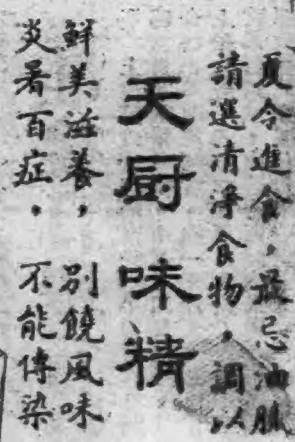 夏令進食，最忌油膩
請選清淨食物，調以
天厨味精
鮮美滋養，別饒風味
炎暑百症，不能傳染